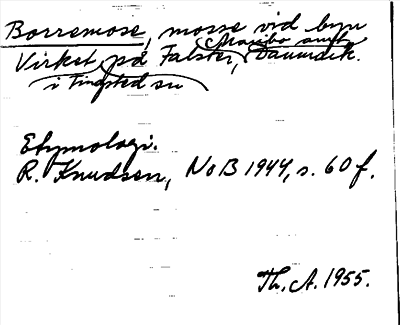 Borremose, mosse vid byn
Maribo amt,
Virket, på Falster, Danmark.
i Tingsted sn
Etymologi.
R. Knudsen, NoB 1944, s. 60 f.
Th. A. 1955.